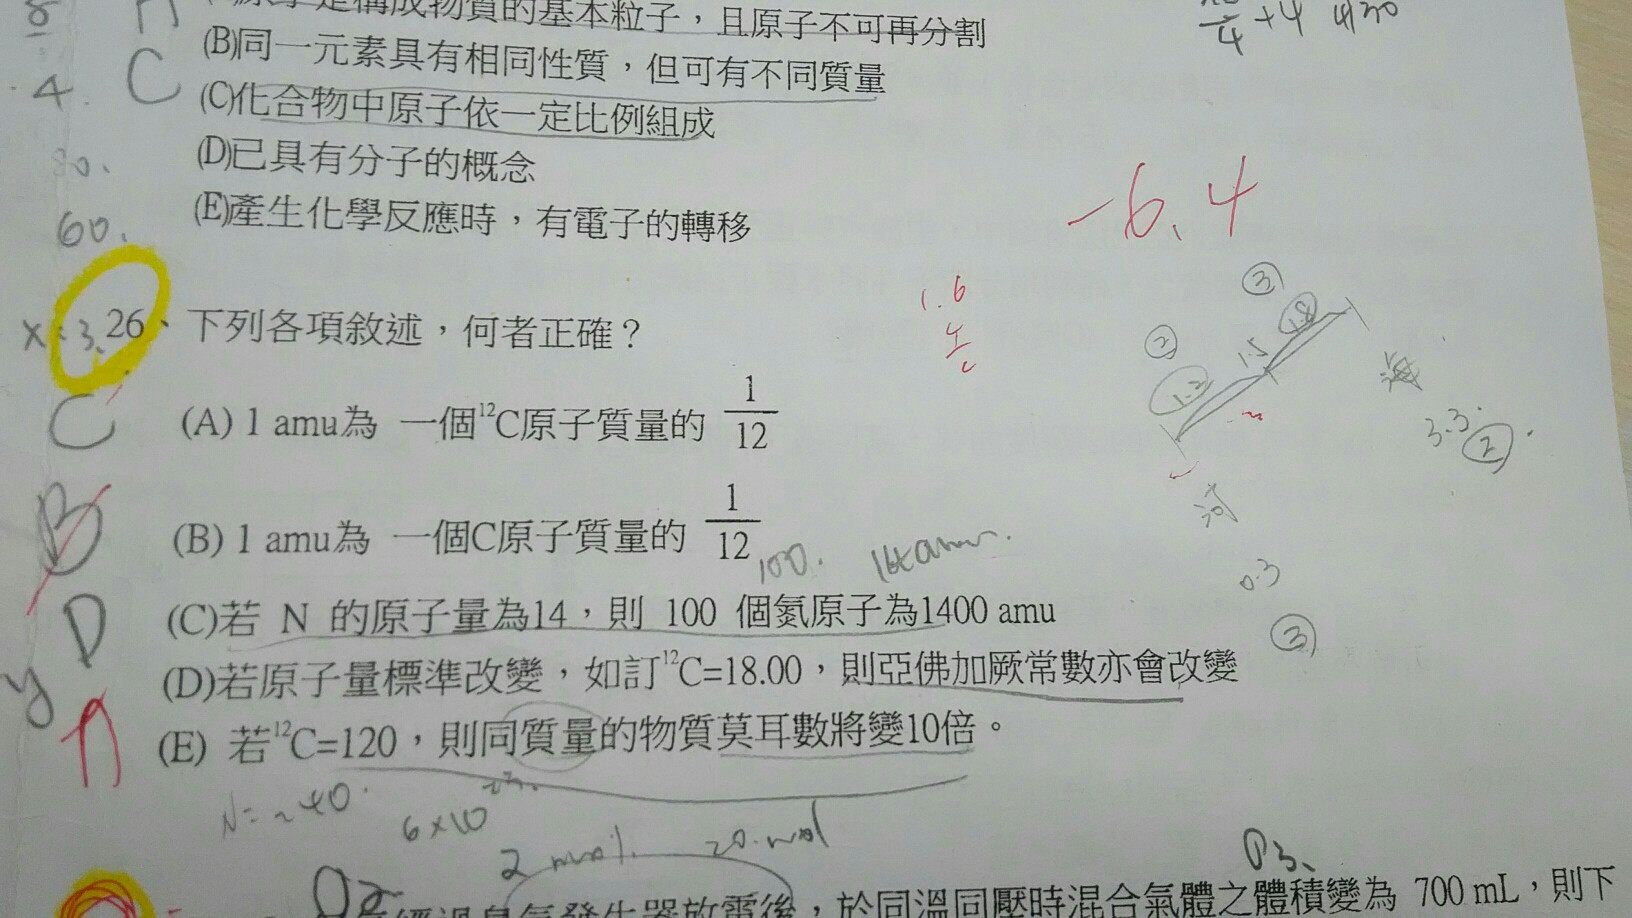 構成物質的基本粒子，且原子不可再分割
(B)同一元素具有相同性質，但可有不同質量
(C)化合物中原子依一定比例組成
(D)已具有分子的概念
(E)產生化學反應時，有電子的轉移
8
4.
C
60.
-6.4
26、下列各項敘述，何者正確？
(A) 1 amu為 一個¹²C原子質量的 1/12
(B) 1 amu為 一個C原子質量的 1/12
100.
(C)若 N 的原子量為14，則 100 個氮原子為1400 amu
(D)若原子量標準改變，如訂¹²C=18.00，則亞佛加厥常數亦會改變
(E) 若¹²C=120，則同質量的物質莫耳數將變10倍。
C
B
D
y
A
1.6
③
1.8
②
1.5
1.2
海
3.3.
②.
河
0.3
③
6×10²³.
2 mol.
20.mol
放電後，於同溫同壓時混合氣體之體積變為 700 mL，則下